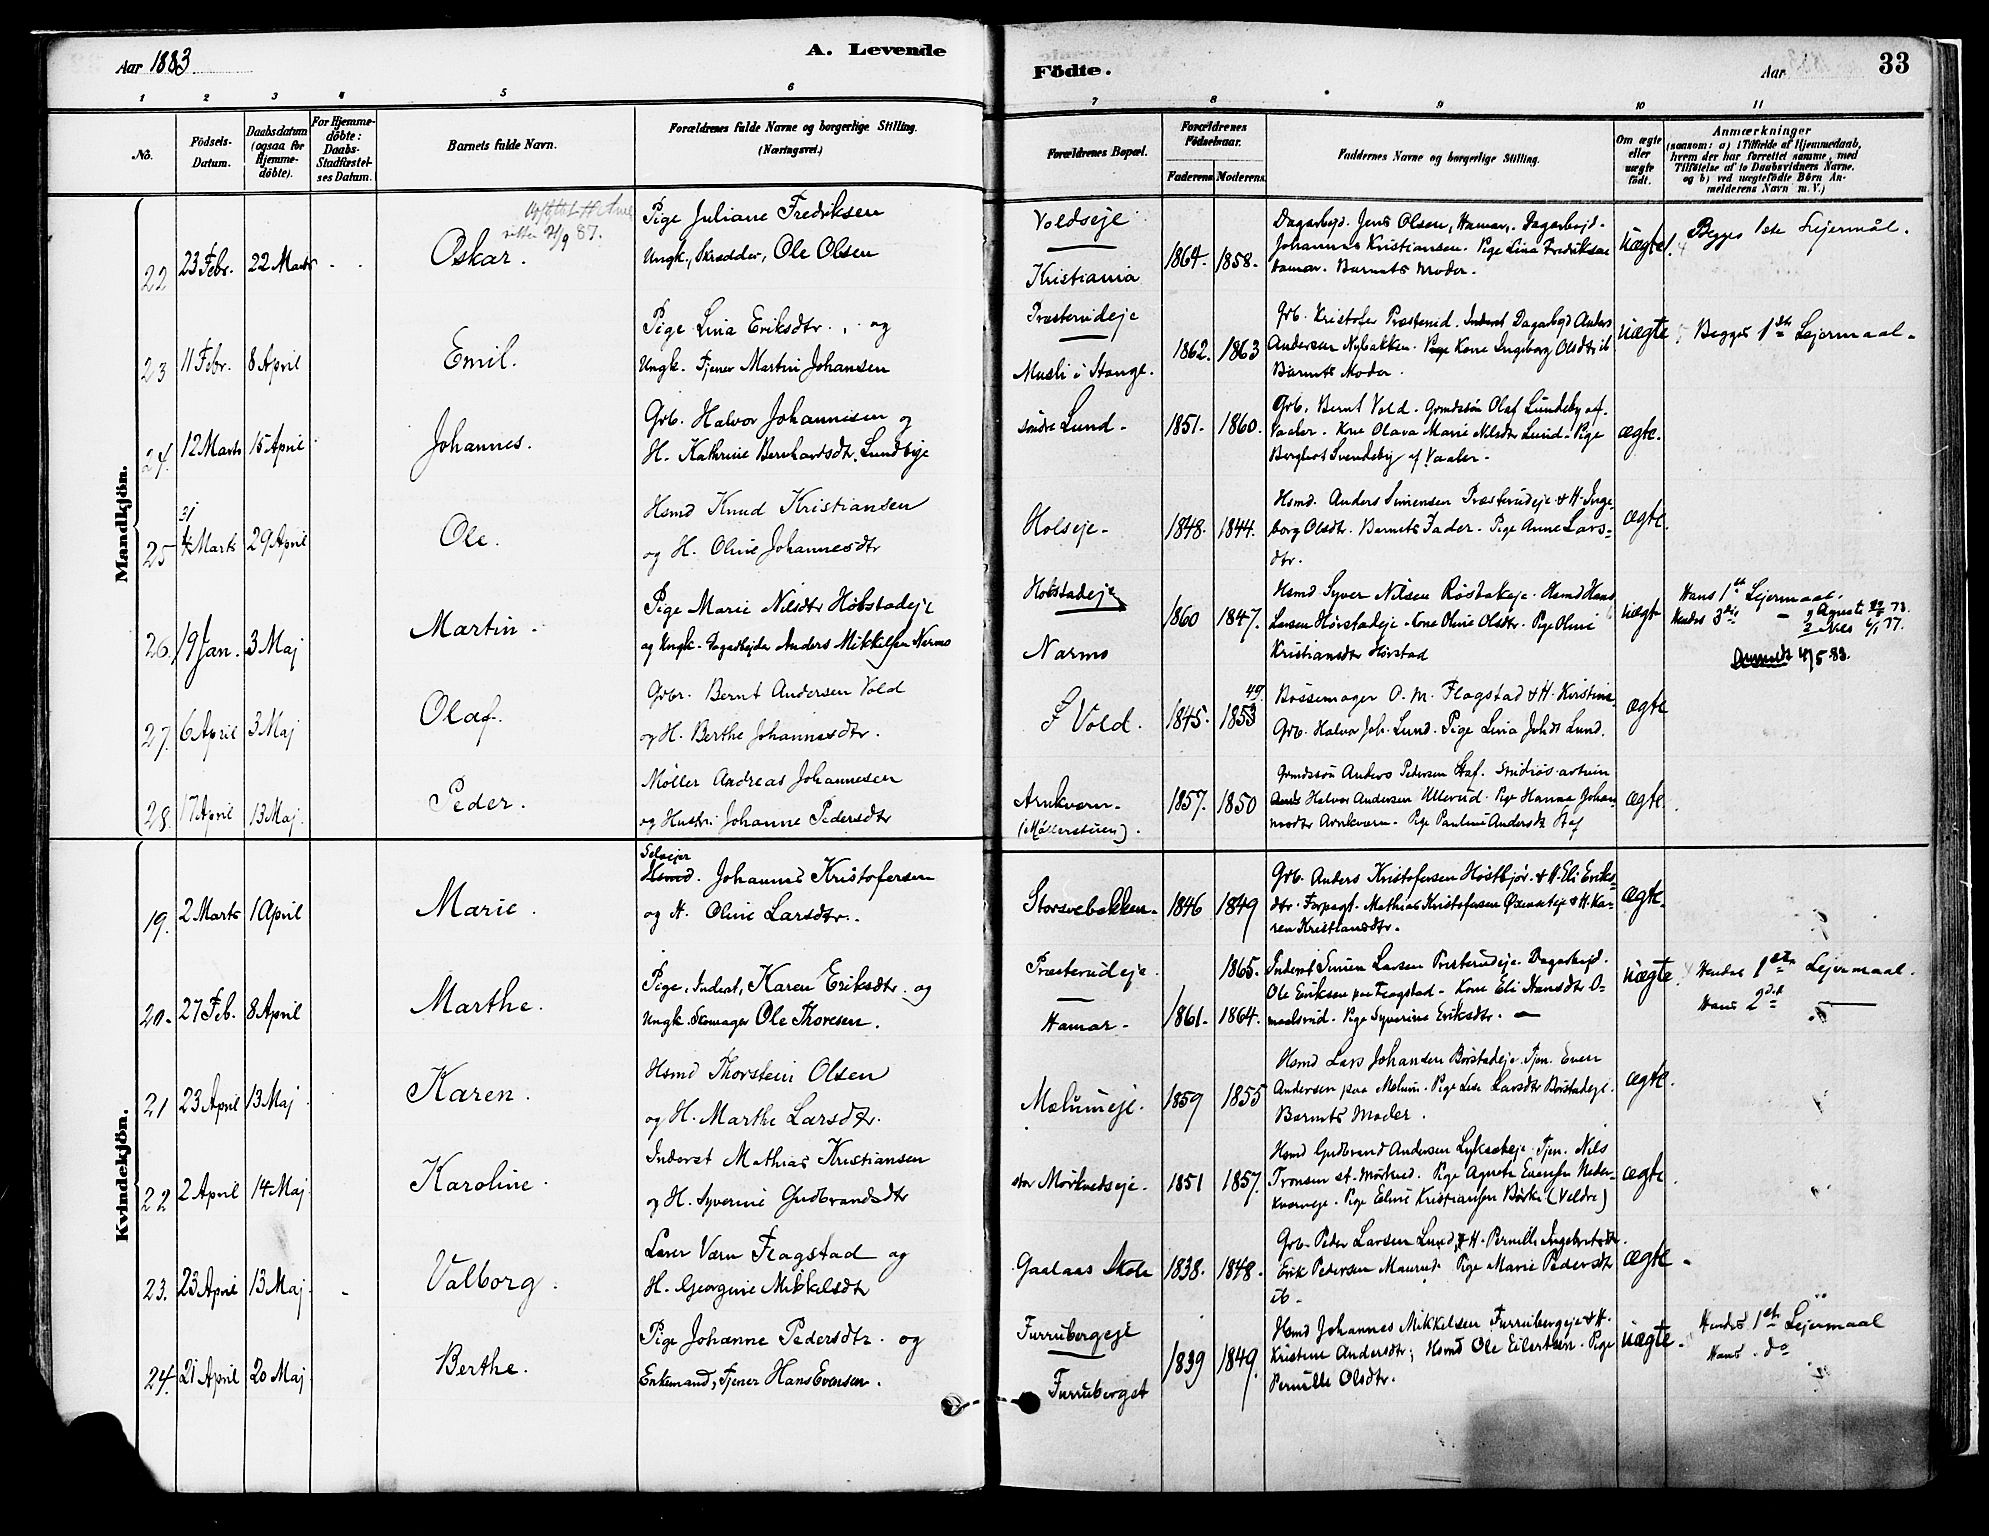 Aar 1883
A. Levende
Födte.
Aar
33
1 2 3 4 5 6 7 8 9 10 11
No.
Födsels-
Datum.
Daabsdatum
(ogsaa for
Hjemme-
döbte).
For Hjemme-
döbte:
Daabs-
Stadfæstel-
ses Datum.
Barnets fulde Navn.
Forældrenes fulde Navne og borgerlige Stilling.
(Næringsvei.)
Forældrenes Bopæl.
Forældrenes
Födselsaar.
Faderens. Moderens.
Faddernes Navne og borgerlige Stilling.
Om ægte
eller
uægte
födt.
Anmærkninger
(saasom: a) i Tilfælde af Hjemmedaab,
hvem der har forrettet samme, med
Tilföielse af to Daabsvidners Navne.
og b) ved uægtefödte Börn An-
melderens Navn m. V.)
Mandkjön.
22 23 Febr. 22 Marts Oskar.
21/9 87.
Pige Juliane Fredriksen
Ungk., Skrædder, Ole Olsen
Voldseje
Kristiania
1864. 1858.
Dagarbejd. Jens Olsen, Hamar, Dagarbejd.
Johannes Kristiansen. Pige Lina Fredriksen
Hamar. Barnets Moder.
uægte
Begges 1ste Lejermål.
23 11 Febr. 8 April Emil.
Pige Lina Eriksdtr. og
Ungk. Tjener Martin Johansen
Præsterudeje
Musli i Stange.
1862. 1863
Grb. Kristofer Præsterud. Inderst Dagarbejd Anders
Andersen Nybakken. Kone Ingeborg Olsdtr ib
Barnets Moder.
uægte
Begges 1ste Lejermaal.
24. 12 Marts 15 April Johannes.
Grb. Halvor Johannesen og
H. Kathrine Bernhardsdtr. Lundbije
söndre Lund.
1851. 1860.
Grb. Bernt Vold. Grmdssön Olaf Lundeby af
Vaaler. Kone Olava Marie Nilsdtr Lund. Pige
Bergljot Svendsby af Vaaler.
ægte.
25 31 Marts 29 April Ole.
Hsmd Knud Kristiansen
og H. Oline Johannesdtr
Holseje.
1848. 1844.
Hsmd. Anders Simensen Præsterudeje & H. Inge-
borg Olsdtr. Barnets Fader. Pige Anne Lars-
dtr.
ægte.
26. 19 Jan. 3 Maj Martin.
Pige Marie Nilsdtr Höbstadeje
og Ungk. Dagarbejder Anders Mikkelsen Narmo
Höbstadeje
Narmo
1860 1847.
Hsmd Syver Nilsen Röstakeje. Hsmd Hans
Larsen Hörstadeje. Kone Oline Olsdtr. Pige Oline
Kristiansdtr Hörstad
uægte
Hans 1ste Lejermaal.
Hendes 3die
4/5 83.
27. 6 April 3 Maj Olaf.
Grbr. Bernt Andersen Vold
og H. Berthe Johannesdtr.
Vold.
1845. 1853
49.
Bössemager O. M. Flagstad & H. Kristine
Grb. Halvor Joh. Lund. Pige Lina Johdt Lund.
ægte
28. 17 April 13 Maj. Peder.
Møller Andreas Johannesen
og Hustru Johanne Pedersdtr
Arnkværn.
(Møllerstuen).
1857. 1850
Grmdssön Anders Pedersen Staf.
Halvor Andersen Ullerud. Pige Hanna Johan-
nesdtr Arnkværn. Pige Pauline Andersdt Staf
ægte
Kvindekjön.
19. 2 Marts 1 April Marie.
Selvejer
Hsmd. Johannes Kristofersen
og H. Oline Larsdtr.
Storsvebakken.
1846 1849
Grb. Anders Kristofersen Höstbjör & H. Eli Eriks-
dtr. Forpagt. Mathias Kristofersen & H. Ka-
ren Kristiansdtr.
ægte.
20. 27 Feb. 8 April Marthe.
Pige, Inderst, Karen Eriksdtr. og
Ungk. Skomager Ole Thoresen.
Præsterudeje.
Hamar.
1865.
1861. 1864.
Inderst Simen Larsen Præsterudeje. Dagarbejd.
Ole Eriksen paa Flagstad. Kone Eli Hansdtr O-
maalsrud. Pige Syverine Eriksdtr.
uægte
Hendes 1ste Lejermaal.
Hans 2det
21 23 April 13 Maj. Karen.
Hsmd Thorstein Olsen
og H. Marthe Larsdtr.
Mælumeje.
1859 1855
Hsmd Lars Johansen Börstadeje. Tjen. Even
Andersen paa Mælum. Pige Lise Larsdtr Börstadeje.
Barnets Moder.
ægte.
22 2 April 14 Maj. Karoline.
Inderst Mathias Kristiansen
og H. Syverine Gudbrandsdtr
stor Mörkvedseje.
1851 1857.
Hsmd Gudbrand Andersen Lyksæteje. Tjen. Nils
Tronsen st. Mörkved. Pige Agnete Evensen Neder-
kværneje. Pige Eline Kristiansen Börke (Veldre)
ægte
23. 23 April 13 Maj. Valborg.
Lærer Værn Flagstad og
H. Georgine Mikkelsdtr
Gaalaas Skole
1838. 1848.
Grb. Peder Larsen Lund & H. Pernille Ingebretsdtr.
Erik Pedersen Maurud. Pige Marie Pedersdtr
ib.
ægte.
24. 21 April 20 Maj. Berthe.
Pige Johanne Pedersdtr. og
Enkemand, Tjener Hans Evensen.
Furrubergeje
Furruberget
1839 1849.
Hsmd Johannes Mikkelsen Furrubergeje & H.
Kristine Andersdtr; Hsmd Ole Eilertsen. Pige
Pernille Olsdtr.
uægte.
Hendes 1ste Lejermaal
Hans do